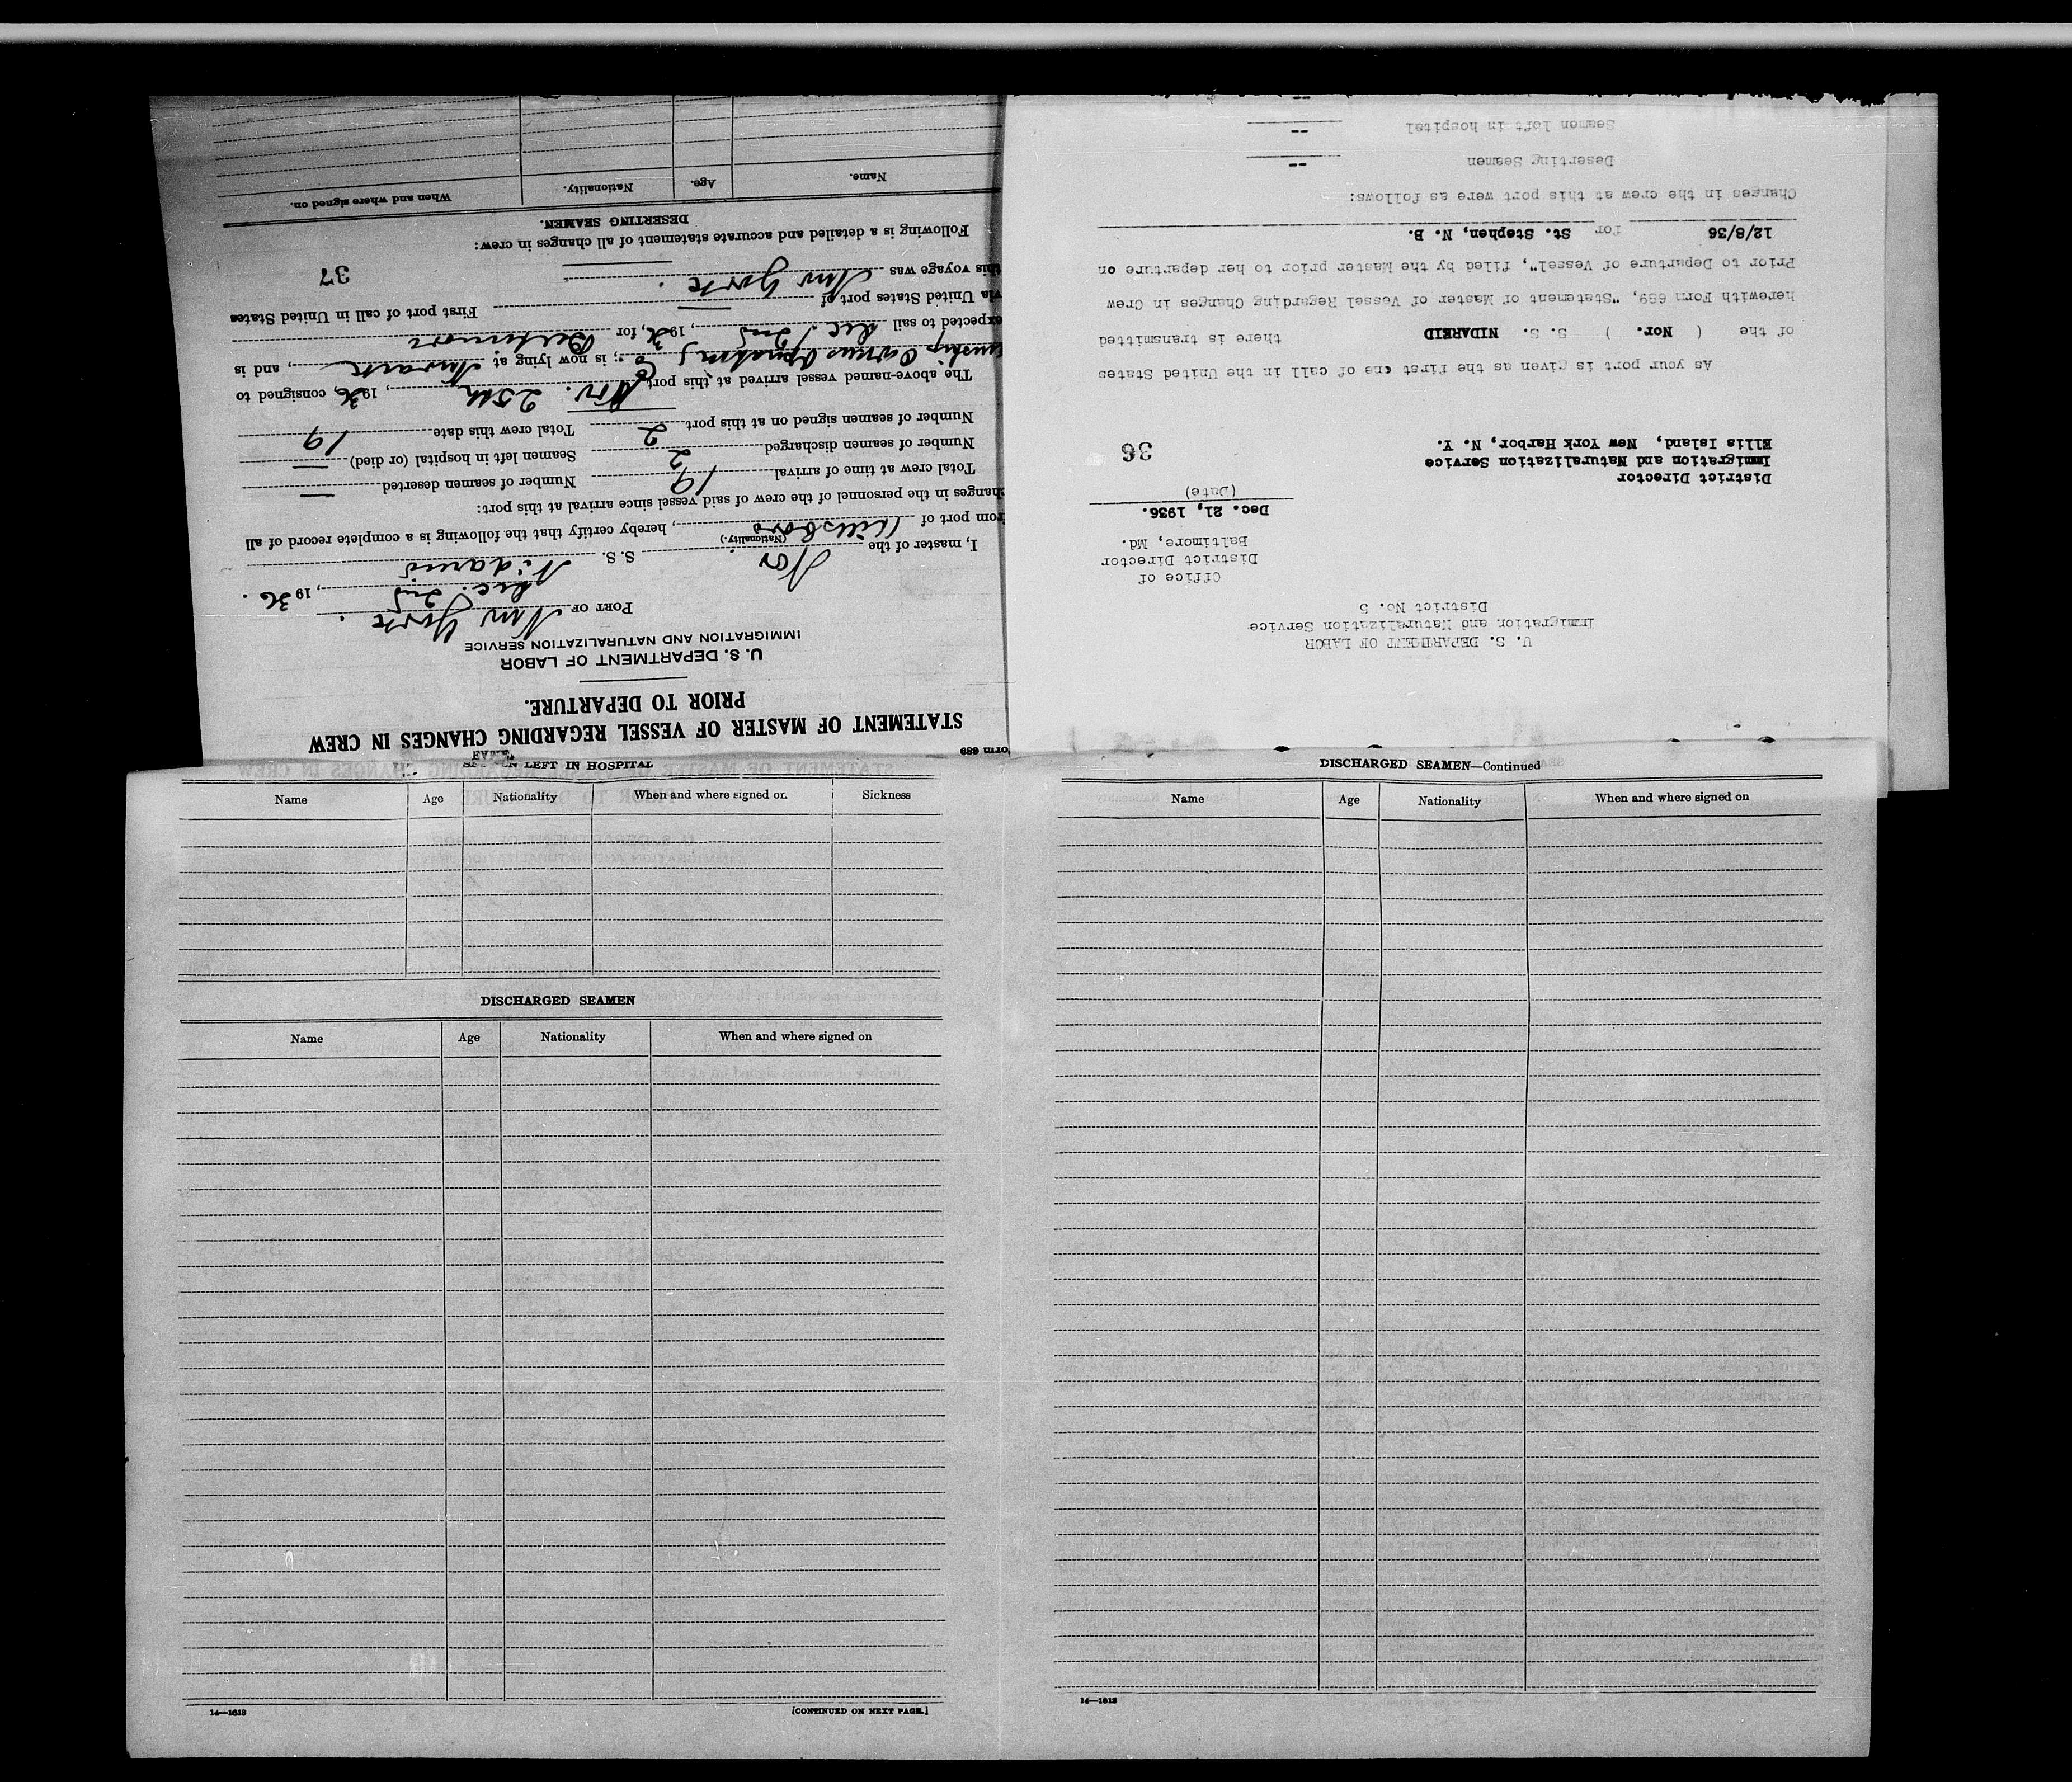 Form 689
STATEMENT OF MASTER OF VESSEL REGARDING CHANGES IN CREW
PRIOR TO DEPARTURE.
U. S. DEPARTMENT OF LABOR
IMMIGRATION AND NATURALIZATION SERVICE
PORT OF New York.
Dec. 2nd, 1936.
I, master of the Nor S. S.
(Nationality.)
from port of Hillsboro, hereby certify that the following is a complete record of all
changes in the personnel of the crew of said vessel since arrival at this port:
Total crew at time of arrival 19 Number of seamen deserted —
Number of seamen discharged 2 Seamen left in hospital (or died) —
Number of seamen signed on at this port 2 Total crew this date 19
The above-named vessel arrived at this port Nov. 25th, 1936, consigned to
Operating Co; is now lying at Newark, and is
expected to sail Dec. 2nd, 1936, for Baltimore
via United States port of — First port of call in United States
this voyage was New York.
37
Following is a detailed and accurate statement of all changes in crew:
DESERTING SEAMEN.
Name. Age. Nationality. When and where signed on.
U. S. DEPARTMENT OF LABOR
Immigration and Naturalization Service
District No. 5
Office of
District Director
Baltimore, Md.
Dec. 21, 1936.
(Date)
District Director
Immigration and Naturalization Service
Ellis Island, New York Harbor, N. Y.
36
As your port is given as the first one of call in the United States
of the ( Nor. ) S. S. NIDAREID there is transmitted
herewith Form 689, "Statement of Master of Vessel Regarding Changes in Crew
Prior to Departure of Vessel", filed by the Master prior to her departure on
12/8/36 for St. Stephen, N. B.
Changes in the crew at this port were as follows:
Deserting Seamen --
Seamen left in hospital --
LEFT IN HOSPITAL
Name Age Nationality When and where signed on Sickness
DISCHARGED SEAMEN
Name Age Nationality When and where signed on
14—1613
[CONTINUED ON NEXT PAGE.]
DISCHARGED SEAMEN—Continued
Name Age Nationality When and where signed on
14—1613